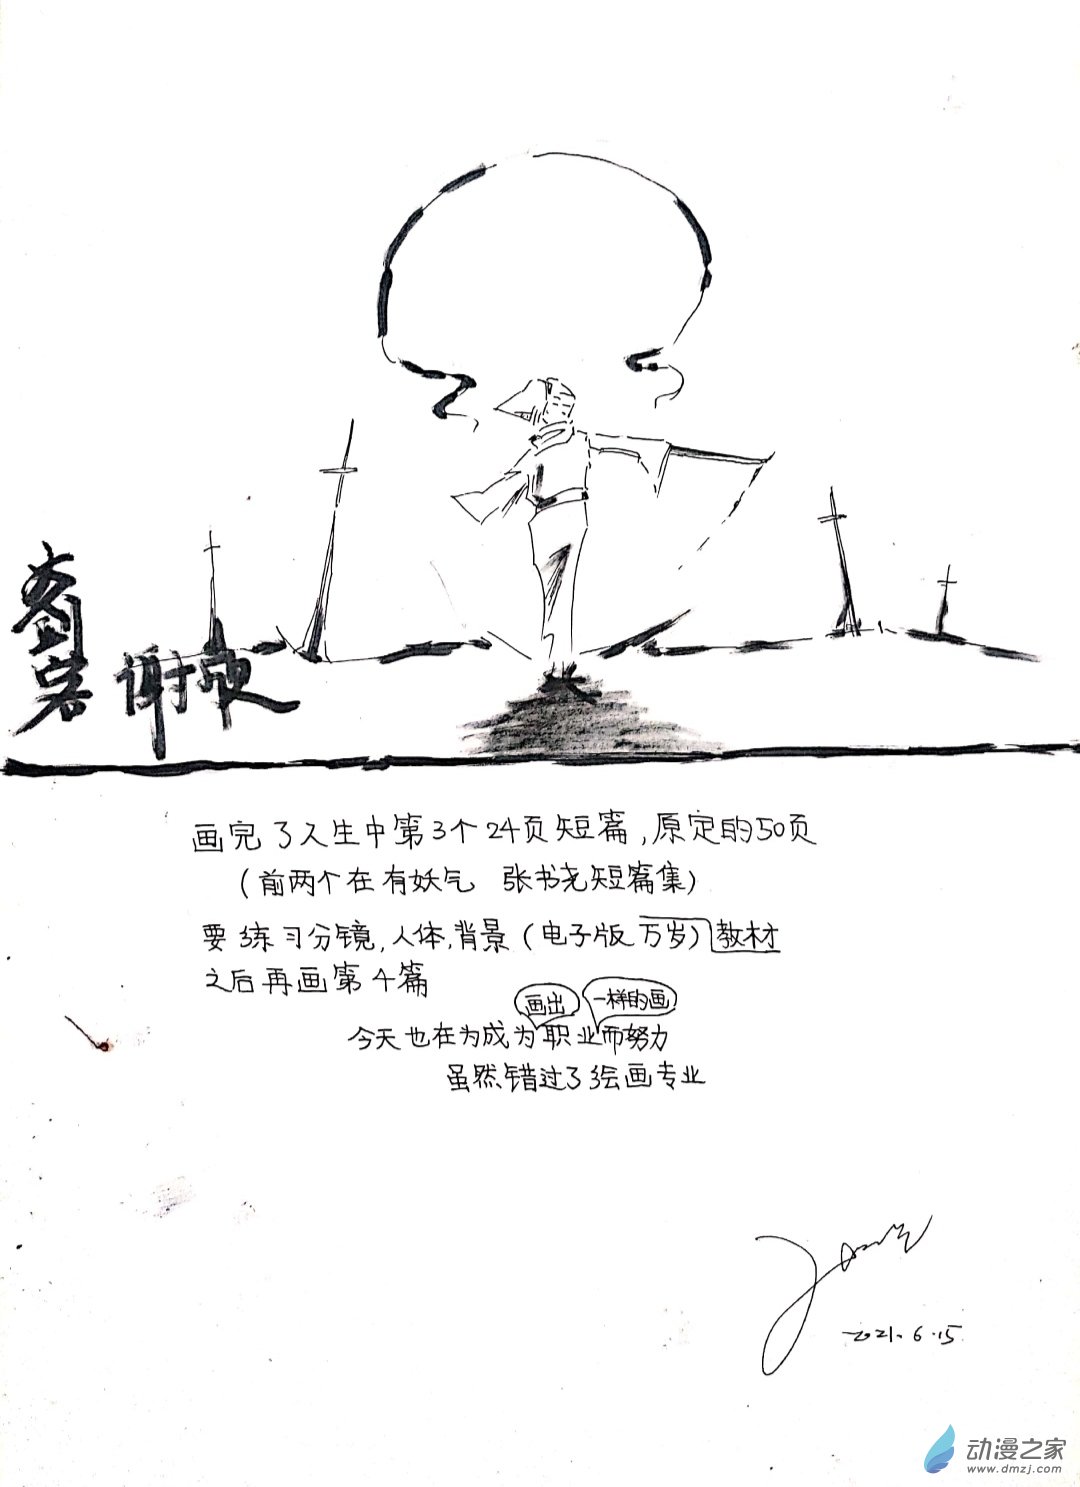 谢幕
画完了人生中第3个24页短篇,原定的50页
(前两个在有妖气 张书尧短篇集)
要练习分镜,人体,背景(电子版万岁)教材
之后再画第4篇
画出 一样的画
今天也在为成为职业而努力
虽然错过了绘画专业
2021.6.15
动漫之家
www.dmzj.com